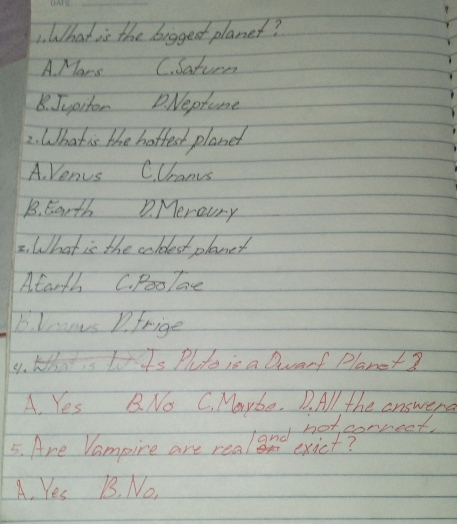 DATE
1. What is the biggest planet?
A. Mars C. Saturn
B. Jupiter D. Neptune
2. What is the hottest planet
A. Venus C. Uranus
B. Earth D. Mercury
3. What is the coldest planet
A. Earth C. PooTae
B. Uranus D. Frige
4. What is Is Pluto is a Dwarf Planet?
A. Yes B. No C. Maybe. D. All the answers
not correct.
5. Are Vampire are real and exict?
A. Yes B. No.